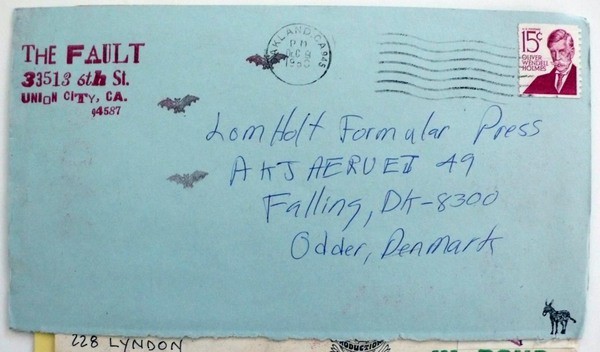 THE FAULT
33513 6th St.
UNION CITY, CA.
94587
OAKLAND, CA
PM
DEC 9
15¢
OLIVER
WENDELL
HOLMES
LomHolt Formular Press
AKJAERVEJ 49
Falling, DK-8300
Odder, Denmark
228 LYNDON